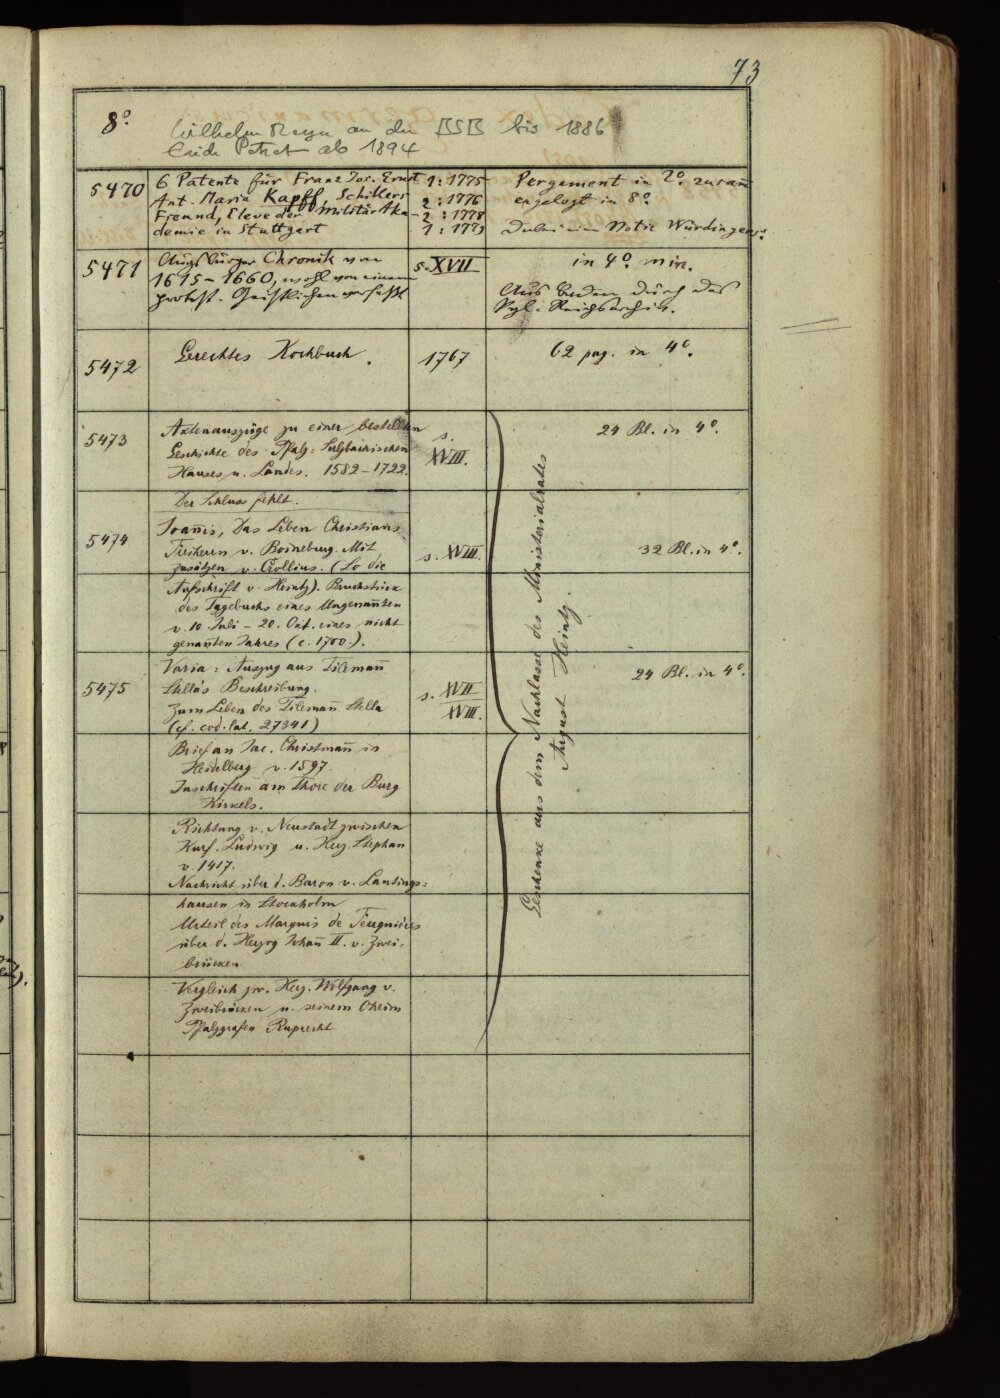 73
8°
Wilhelm Meyer an der BSB bis 1886
Erich Petzet ab 1894
5470
6 Patente für Franz Jos. Ernst
Ant. Maria Kapff, Schillers
Freund, Eleve der Militär Aka-
demie in Stuttgart
1:1775
2:1776
2:1778
1:1779
Pergament in 2°. zusam̄
gelegt in 8°
Dabei eine Notiz Würdingers.
5471
Augsburger Chronik von
1615-1660, wohl von einem
protest. Geistlichen verfaßt
s. XVII
in 4° min.
Aus Baden durch das
Kgl. Reichsarchiv.
5472
Gerechtes Kochbuch.
1767
62 pag. in 4°.
5473
Aktenauszüge zu einer bestellten
Geschichte des Pfalz=Sulzbachischen
Hauses u. Landes. 1582-1722.
Der Schluss fehlt.
s.
XVIII.
24 Bl. in 4°.
5474
Joan̄is, Das Leben Christians
Freiherrn v. Boineburg. Mit
Zusätzen v. Crollius. (So die
Aufschrift v. Heintz). Bruchstück
des Tagebuchs eines Ungenan̄ten
v. 10 Juli - 20. Okt. eines nicht
genan̄ten Jahres (c. 1700).
s. XVIII.
32 Bl. in 4°.
5475
Varia: Auszug aus Tileman̄
Stella's Beschreibung.
Zum Leben des Tileman̄ Stella
(cf. cod. lat. 27341)
Brief an Jac. Christman̄ in
Heidelberg v. 1597.
Inschriften am Thore der Burg
Kirkels.
Richtung v. Neustadt zwischen
Kurf. Ludwig u. Herz. Stephan
v. 1417.
Nachricht über d. Baron v. Lantings=
hausen in Stockholm
Urteil des Marquis de Feuquières
über d. Herzog Johan̄ II. v. Zwei=
brücken
Vergleich zw. Herz. Wolfgang v.
Zweibrücken u. seinem Oheim
Pfalzgrafen Ruprecht
s. XVII
XVIII.
24 Bl. in 4°.
Geschenke aus dem Nachlasse des Ministerialrates
August Heintz.